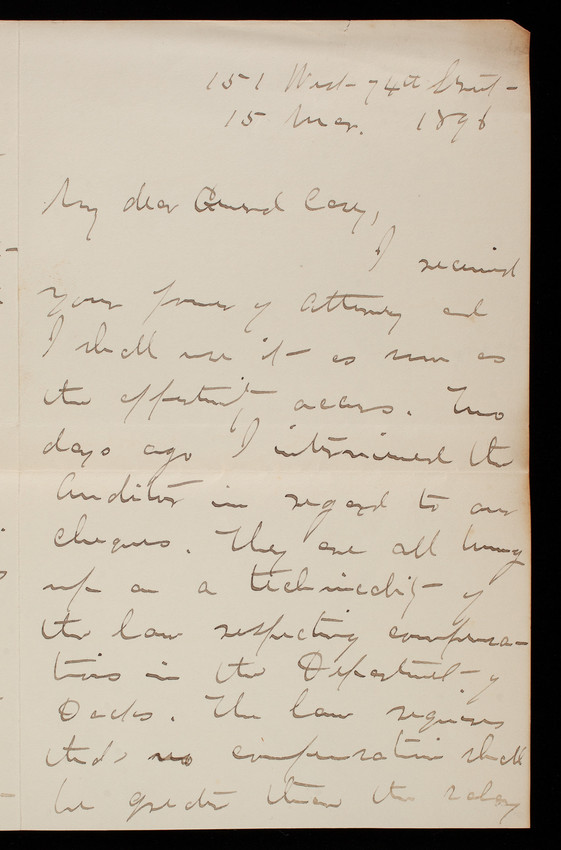 151 West 74th Street
15 Mar. 1896
My dear General Casey,
I received
your power of Attorney and
I shall use it as soon as
the opportunity occurs. Two
days ago I interviewed the
Auditor in regard to our
cheques. They are all hung
up on a technicality of
the law respecting compensa-
tions in the Department of
Docks. The law requires
that no compensation shall
be greater than the salary